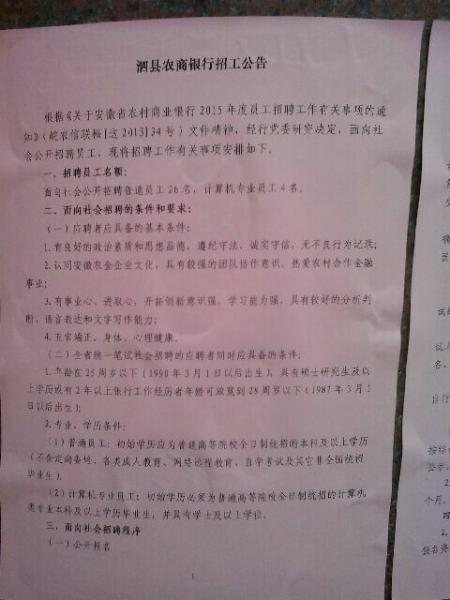 泗县农商银行招工公告
根据《关于安徽省农村商业银行 2015 年度员工招聘工作有关事项的通
知》(皖农信联秘[2015]34 号)文件精神,经行党委研究决定,面向社
会公开招聘员工,现将招聘工作有关事项安排如下。
一、招聘员工名额:
面向社会公开招聘普通员工 26 名,计算机专业员工 4 名。
二、面向社会招聘的条件和要求:
(一)应聘者应具备的基本条件:
1.有良好的政治素质和思想品德,遵纪守法,诚实守信,无不良行为记录;
2.认同安徽农金企业文化,具有较强的团队协作意识,热爱农村合作金融
事业;
3.有事业心、进取心,开拓创新意识强,学习能力强,具有较好的分析判
断、语言表达和文字写作能力;
4.五官端正,身体、心理健康。
(二)全省统一笔试社会招聘的应聘者同时应具备的条件:
1.年龄在 25 周岁以下(1990 年 3 月 1 日以后出生),具有硕士研究生及以
上学历或有 2 年以上银行工作经历者年龄可放宽到 28 周岁以下(1987 年 3 月 1
日以后出生);
2.专业、学历条件:
(1)普通员工:初始学历应为普通高等院校全日制统招的本科及以上学历
(不含定向委培、各类成人教育、网络远程教育、自学考试及其它非全国统招
毕业生)。
(2)计算机专业员工:初始学历必须为普通高等院校全日制统招的计算机
类专业本科及以上学历毕业生,并具有学士及以上学位。
三、面向社会招聘程序
(一)公开报名
1